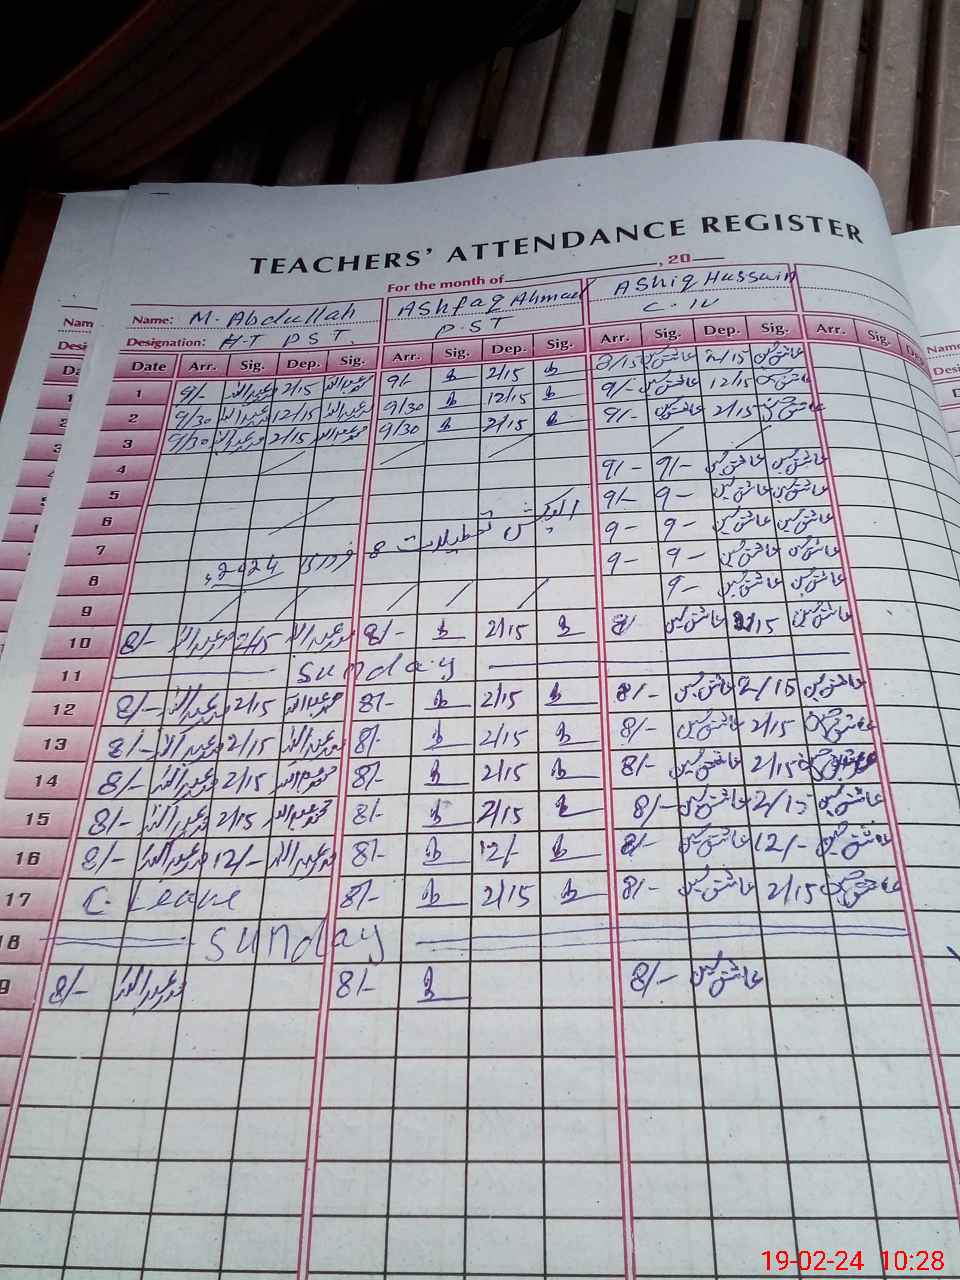 TEACHERS' ATTENDANCE REGISTER
For the month of , 20
Name: M. Abdullah Ashfaq Ahmad Ashiq Hussain
Designation: H.T P S T. P.S T C-IV
Date Arr. Sig. Dep. Sig. Arr. Sig. Dep. Sig. Arr. Sig. Dep. Sig. Arr. Sig.
1 9/- 2/15 9/- 2/15 8/15 عاشق حسین 2/15 عاشق حسین
2 9/30 12/15 9/30 12/15 9/- عاشق حسین 12/15 عاشق حسین
3 9/30 2/15 9/30 2/15 9/- عاشق حسین 2/15 عاشق حسین
4
5 9/- 9/- عاشق حسین عاشق حسین
6 9/- 9- عاشق حسین عاشق حسین
الیکشن تعطیلات 8 فروری 2024ء
7 9- 9- عاشق حسین عاشق حسین
8 9- 9- عاشق حسین عاشق حسین
9 9- عاشق حسین عاشق حسین
10 8/- محمد عبداللہ 2/15 محمد عبداللہ 8/- 2/15 8/- عاشق حسین 2/15 عاشق حسین
11 Sunday
12 8/- محمد عبداللہ 2/15 محمد عبداللہ 8/- 2/15 8/- عاشق حسین 2/15 عاشق حسین
13 8/- محمد عبداللہ 2/15 محمد عبداللہ 8/- 2/15 8/- عاشق حسین 2/15 عاشق حسین
14 8/- محمد عبداللہ 2/15 محمد عبداللہ 8/- 2/15 8/- عاشق حسین 2/15
15 8/- محمد عبداللہ 2/15 محمد عبداللہ 8/- 2/15 8/- عاشق حسین 2/15 عاشق حسین
16 8/- محمد عبداللہ 12/- محمد عبداللہ 8/- 12/- 8/- عاشق حسین 12/- عاشق حسین
17 C. Leave 8/- 2/15 8/- عاشق حسین 2/15 عاشق حسین
18 Sunday
9 8/- محمد عبداللہ 8/- 8/- عاشق حسین
19-02-24 10:28